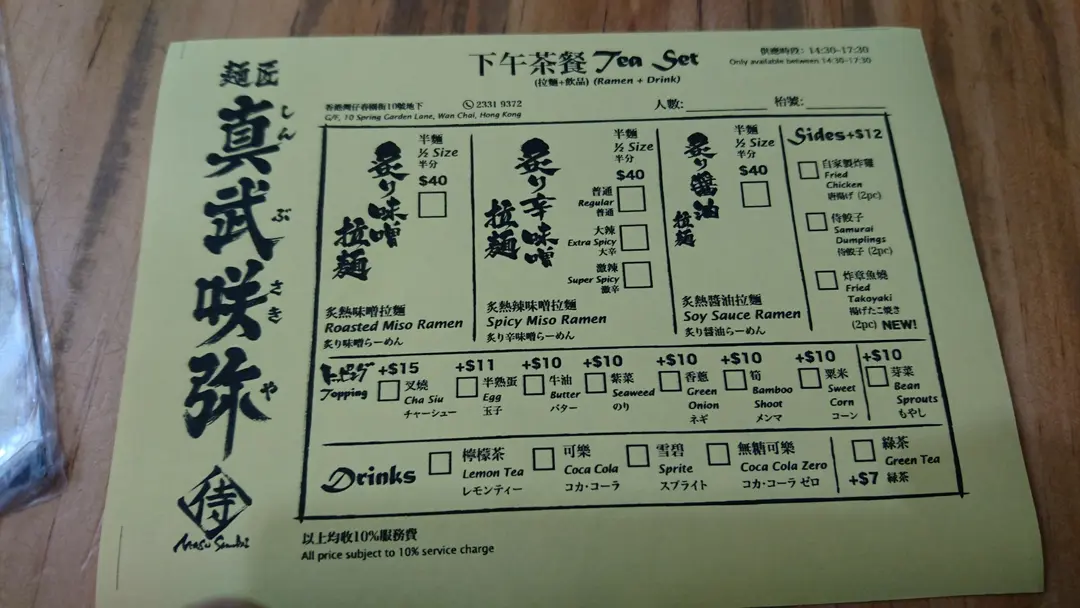 麺匠
真武咲弥
しんぶさきや
侍
下午茶餐 Tea Set
(拉麵+飲品) (Ramen + Drink)
供應時段: 14:30-17:30
Only available between 14:30-17:30
香港灣仔春園街10號地下
2331 9372
G/F, 10 Spring Garden Lane, Wan Chai, Hong Kong
人數:
枱號:
炙り味噌
拉麺
半麵
½ Size
半分
$40
炙熱味噌拉麵
Roasted Miso Ramen
炙り味噌らーめん
炙り辛味噌
拉麺
半麵
½ Size
半分
$40
普通
Regular
普通
大辣
Extra Spicy
大辛
激辣
Super Spicy
激辛
炙熱辣味噌拉麵
Spicy Miso Ramen
炙り辛味噌らーめん
炙り醤油
拉麺
半麵
½ Size
半分
$40
炙熱醬油拉麵
Soy Sauce Ramen
炙り醤油らーめん
Sides+$12
自家製炸雞
Fried
Chicken
唐揚げ (2pc)
侍餃子
Samurai
Dumplings
侍餃子 (2pc)
炸章魚燒
Fried
Takoyaki
揚げたこ焼き
(2pc) NEW!
トッピング
Topping
+$15
叉燒
Cha Siu
チャーシュー
+$11
半熟蛋
Egg
玉子
+$10
牛油
Butter
バター
+$10
紫菜
Seaweed
のり
+$10
香蔥
Green
Onion
ネギ
+$10
筍
Bamboo
Shoot
メンマ
+$10
粟米
Sweet
Corn
コーン
+$10
芽菜
Bean
Sprouts
もやし
Drinks
檸檬茶
Lemon Tea
レモンティー
可樂
Coca Cola
コカ・コーラ
雪碧
Sprite
スプライト
無糖可樂
Coca Cola Zero
コカ・コーラ ゼロ
綠茶
Green Tea
+$7 緑茶
以上均收10%服務費
All price subject to 10% service charge